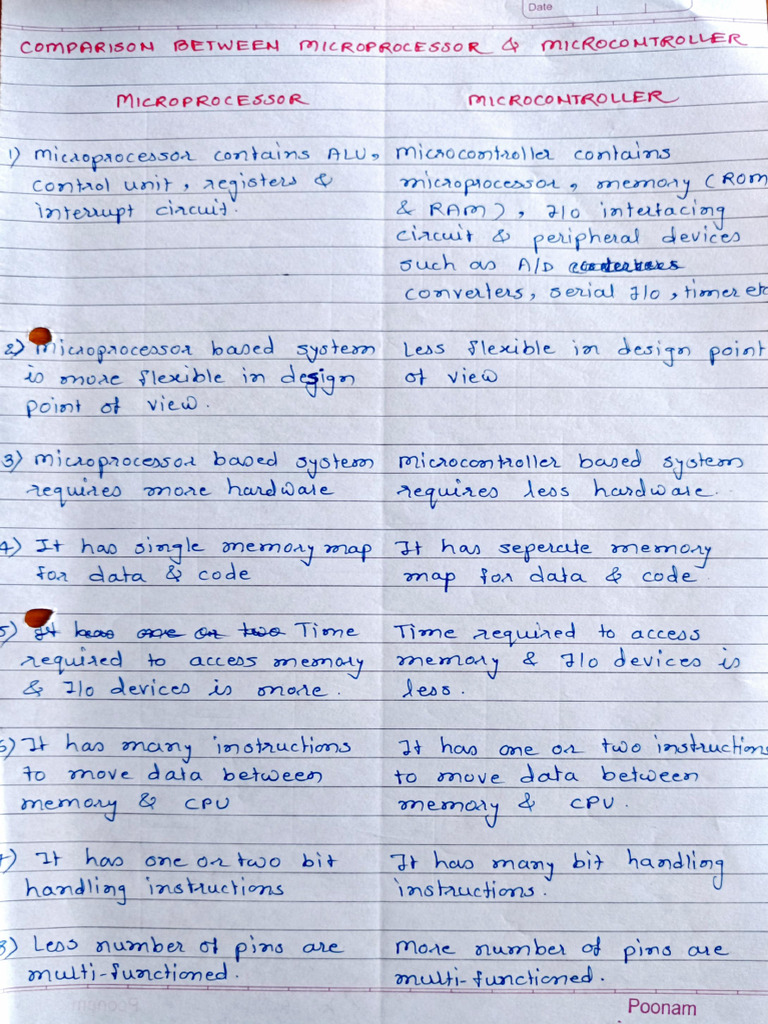 Date
COMPARISON BETWEEN MICROPROCESSOR & MICROCONTROLLER
MICROPROCESSOR
MICROCONTROLLER
1) Microprocessor contains ALU,
control unit, registers &
interrupt circuit.
Microcontroller contains
microprocessor, memory (ROM
& RAM), I/O interfacing
circuit & peripheral devices
such as A/D
converters, serial I/O, timer etc
2) Microprocessor based system
is more flexible in design
point of view.
Less flexible in design point
of view
3) Microprocessor based system
requires more hardware
Microcontroller based system
requires less hardware..
4) It has single memory map
for data & code
It has seperate memory
map for data & code
5) It has one or two Time
required to access memory
& I/O devices is more.
Time required to access
memory & I/O devices is
less.
6) It has many instructions
to move data between
memory & CPU
It has one or two instructions
to move data between
memory & CPU.
7) It has one or two bit
handling instructions
It has many bit handling
instructions.
8) Less number of pins are
multi-functioned.
More number of pins are
multi-functioned.
Poonam